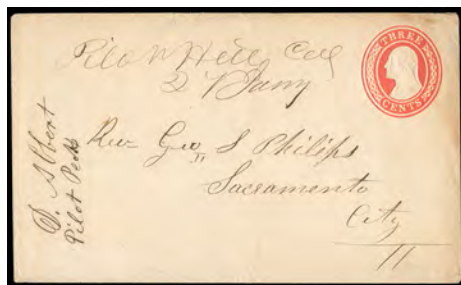 Pilot Hill Cal
27 Jany
THREE
CENTS
Rev Geo S Philips
Sacramento
City
D. Albert
Pilot Peak